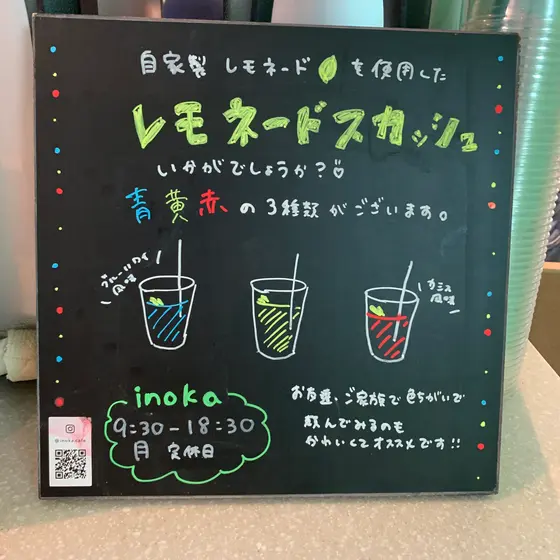 自家製 レモネード を使用した
レモネードスカッシュ
いかがでしょうか?
青 黄 赤 の 3種類 がございます。
ブルーハワイ
風味
カシス
風味
inoka
9:30-18:30
月 定休日
お友達、ご家族で色ちがいで
飲んでみるのも
かわいくてオススメです!!
@inokacafe